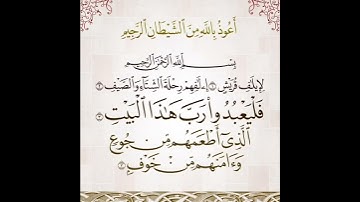 أَعُوذُ بِاللَّهِ مِنَ ٱلشَّيْطَانِ ٱلرَّجِيمِ
بِسْمِ ٱللَّهِ ٱلرَّحْمَٰنِ ٱلرَّحِيمِ
لِإِيلَٰفِ قُرَيْشٍ ۝١ إِۦلَٰفِهِمْ رِحْلَةَ ٱلشِّتَآءِ وَٱلصَّيْفِ ۝٢
فَلْيَعْبُدُوا۟ رَبَّ هَٰذَا ٱلْبَيْتِ ۝٣
ٱلَّذِىٓ أَطْعَمَهُم مِّن جُوعٍ
وَءَامَنَهُم مِّنْ خَوْفٍۭ ۝٤